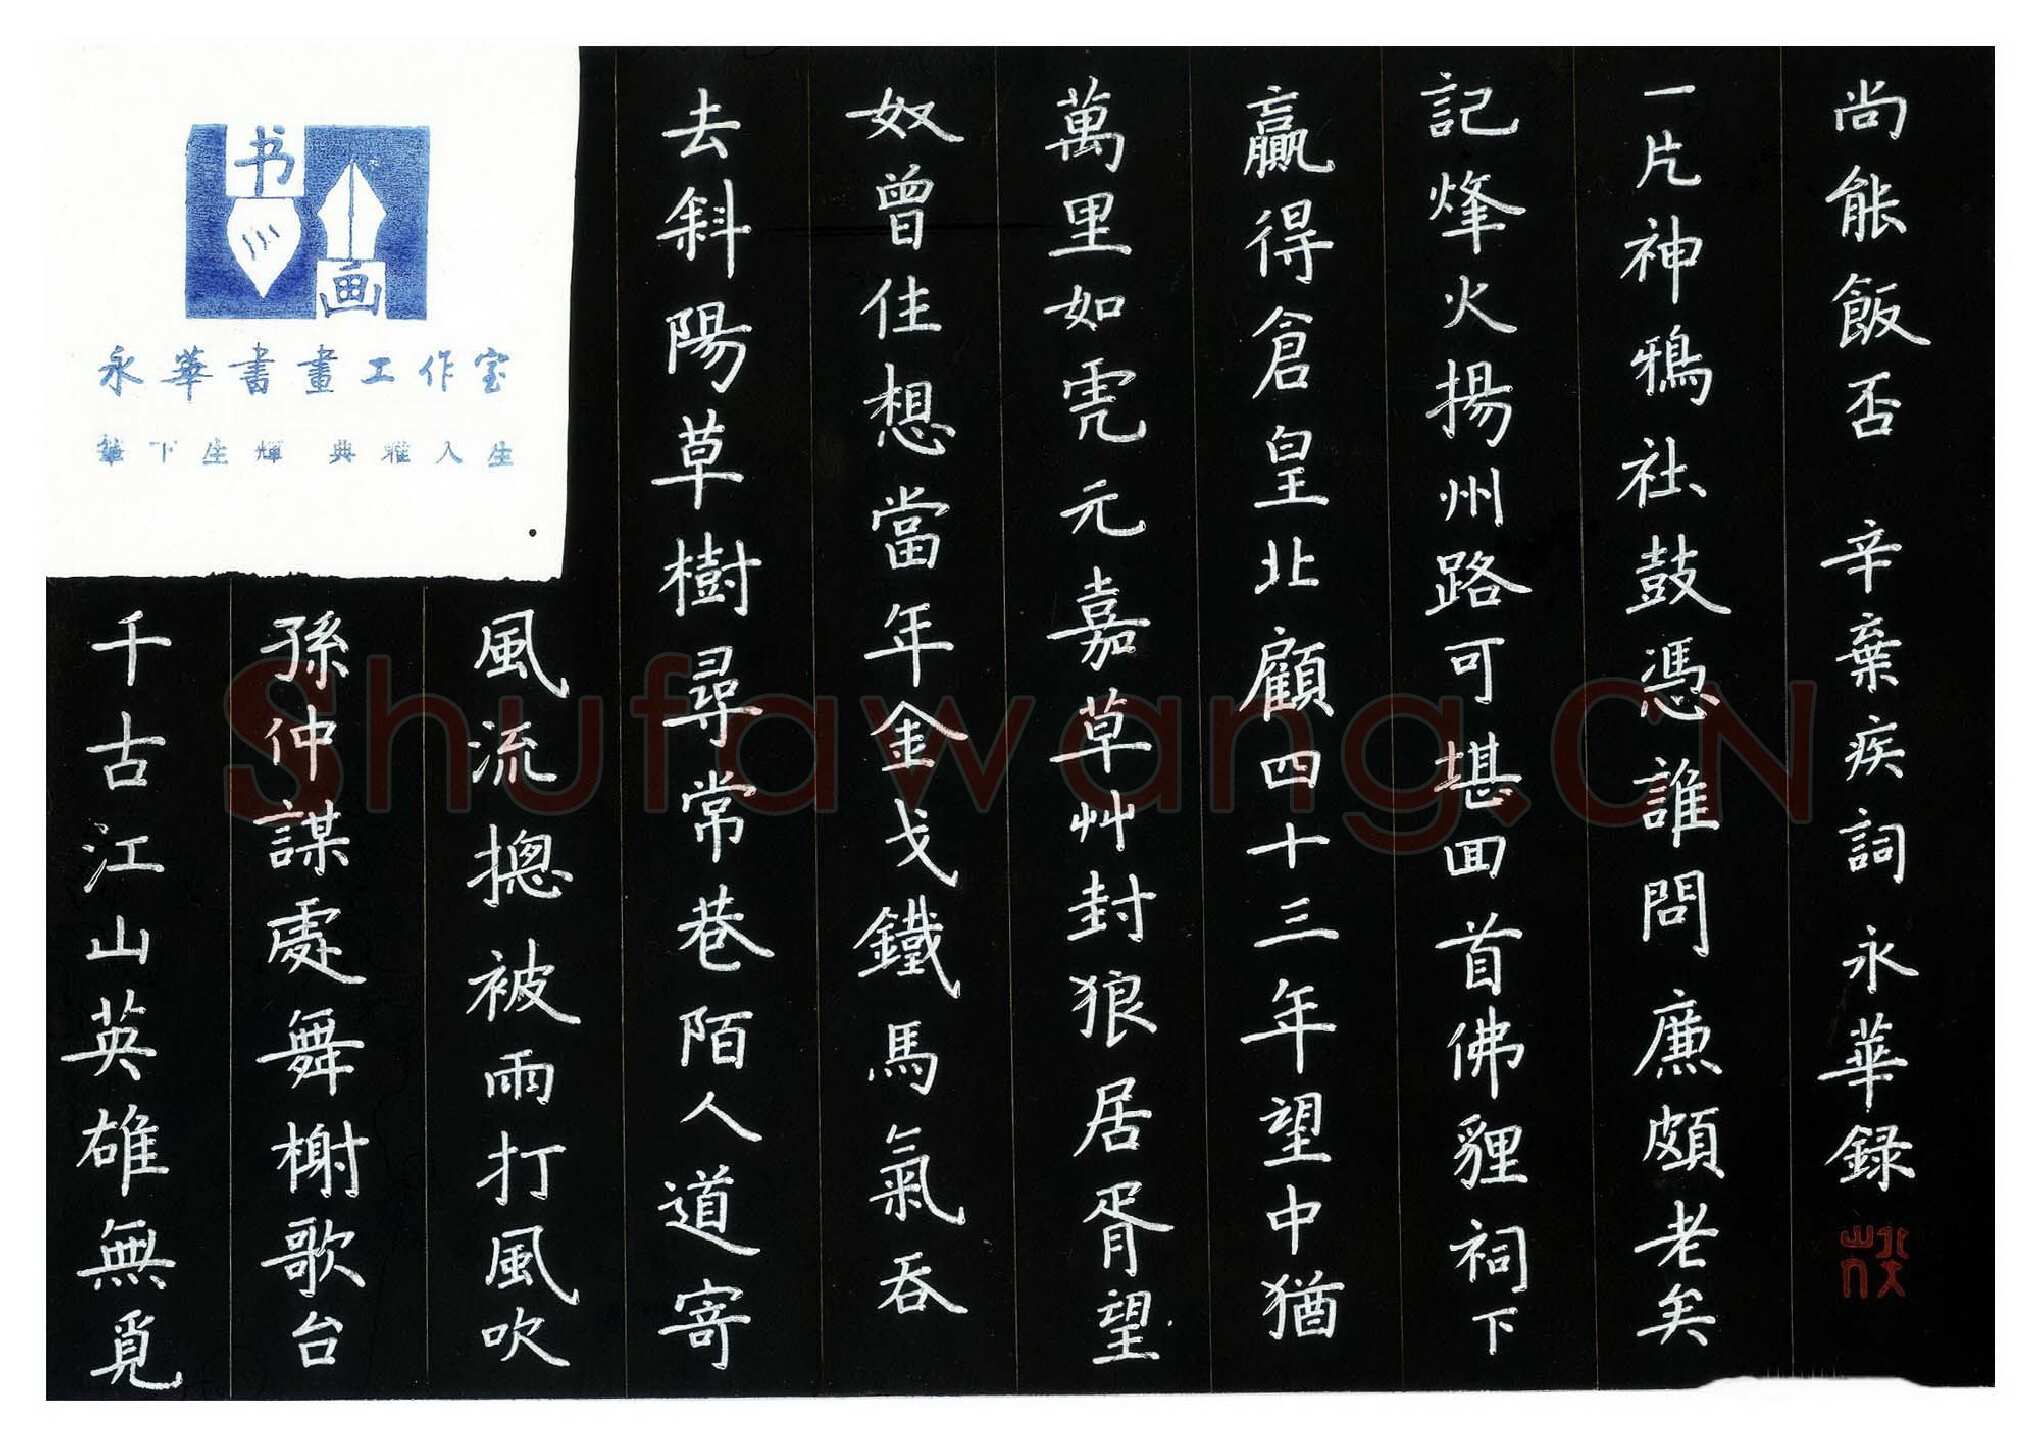 书
画
永華書畫工作室
筆下生輝 典雅人生
千古江山英雄無覓
孫仲謀處舞榭歌台
風流摠被雨打風吹
去斜陽草樹尋常巷陌人道寄
奴曾住想當年金戈鐵馬氣吞
萬里如虎元嘉草艸封狼居胥望
贏得倉皇北顧四十三年望中猶
記烽火揚州路可堪囬首佛貍祠下
一片神鴉社鼓憑誰問廉頗老矣
尚能飯否 辛棄疾詞 永華録
Shufawang.CN